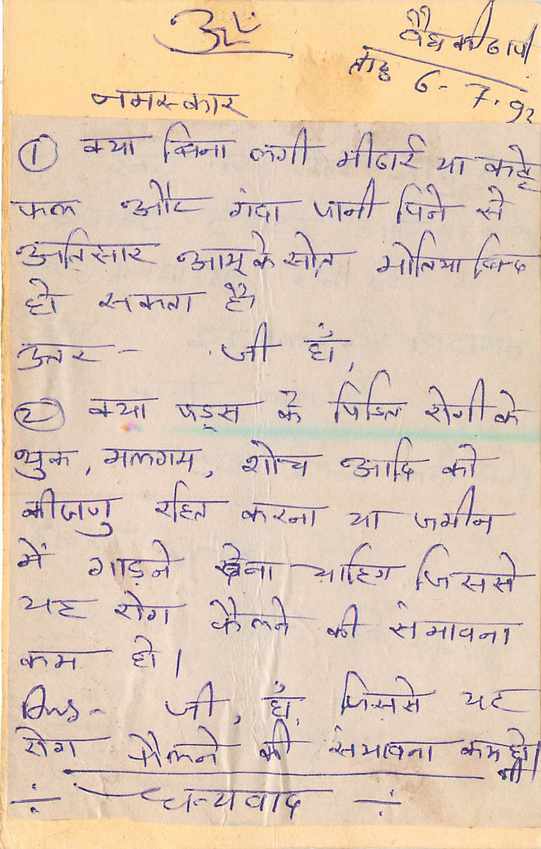 ॐ
वैध की ढाणी
6-7.92
नमस्कार
① क्या बिना लगी मीठाई या कटे
फल और गंदा पानी पिने से
अतिसार आमू के सोत मोतिया बिन्द
हो सकता है
उत्तर - जी हाँ,
② क्या एड्स के पिडित रोगी के
थुक, मलगम, शोच आदि को
कीजाणु रहित करना या जमीन
में गाड़ने देना चाहिए जिससे
यह रोग फैलने की संभावना
कम हो।
Ans- जी, हाँ, जिससे यह
रोग फैलने की संभावना कम हो।
÷ धन्यवाद ÷